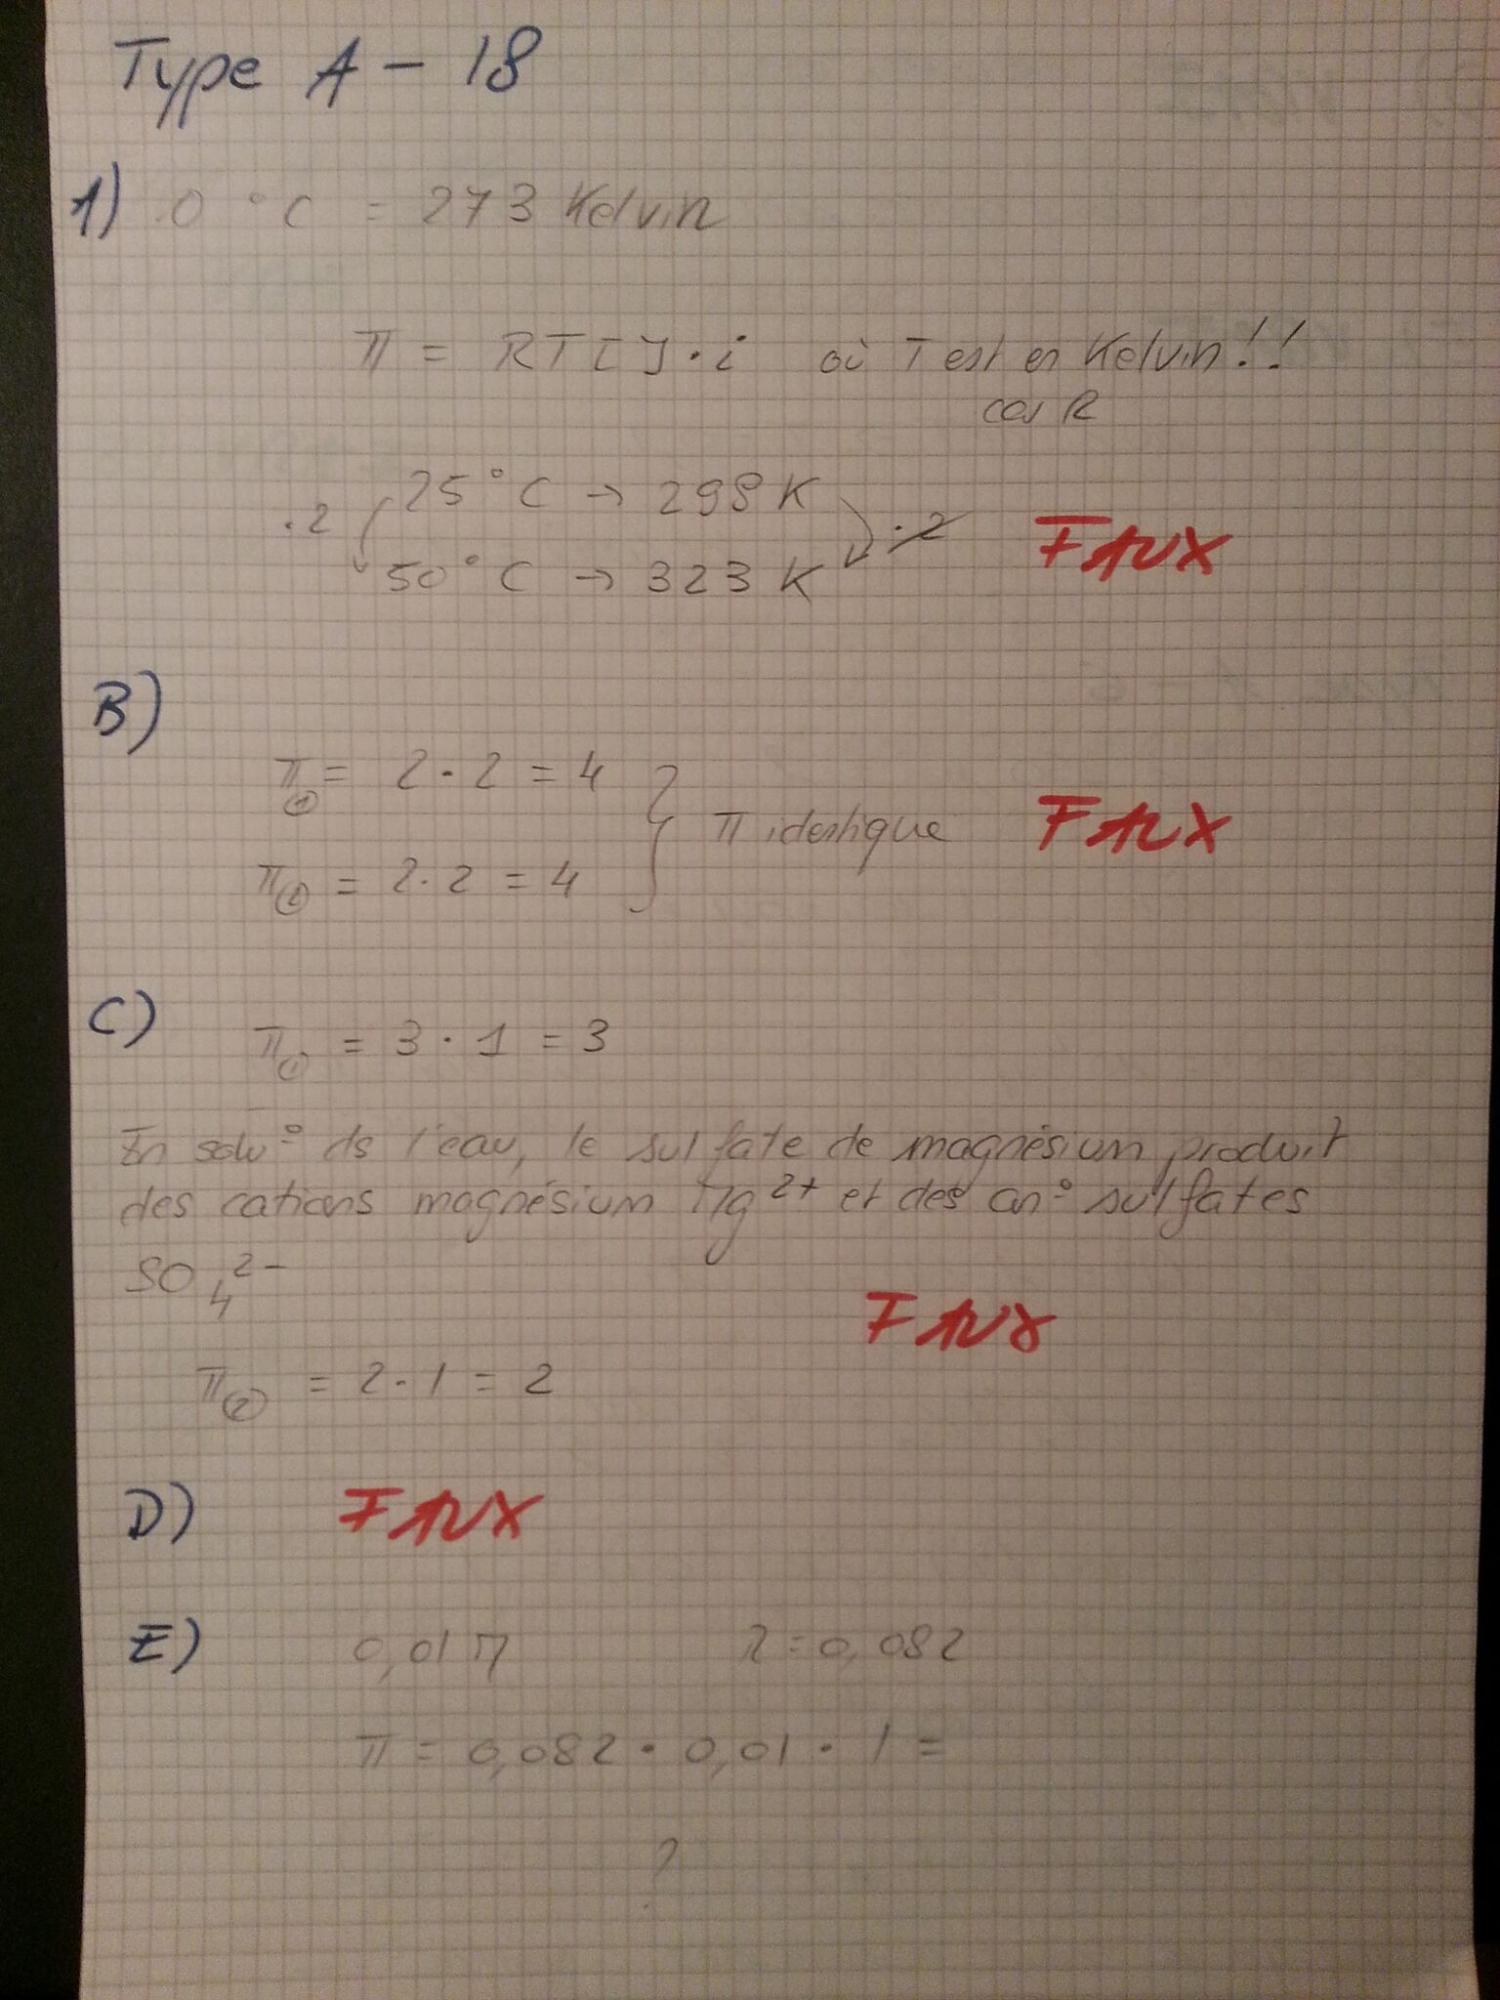 Type A - 18
1) 0 °C = 273 Kelvin
π = RT[ ] · i où T est en Kelvin!!
car R
·2 25°C → 298 K ·2
50°C → 323 K FAUX
B)
π① = 2 · 2 = 4
π identique FAUX
π② = 2 · 2 = 4
C) π① = 3 · 1 = 3
En solu° ds l'eau, le sulfate de magnésium produit
des cations magnésium Mg²⁺ et des an° sulfates
SO₄²⁻
FAUX
π② = 2 · 1 = 2
D) FAUX
E) 0,01 M R = 0,082
π = 0,082 · 0,01 · 1 =
?